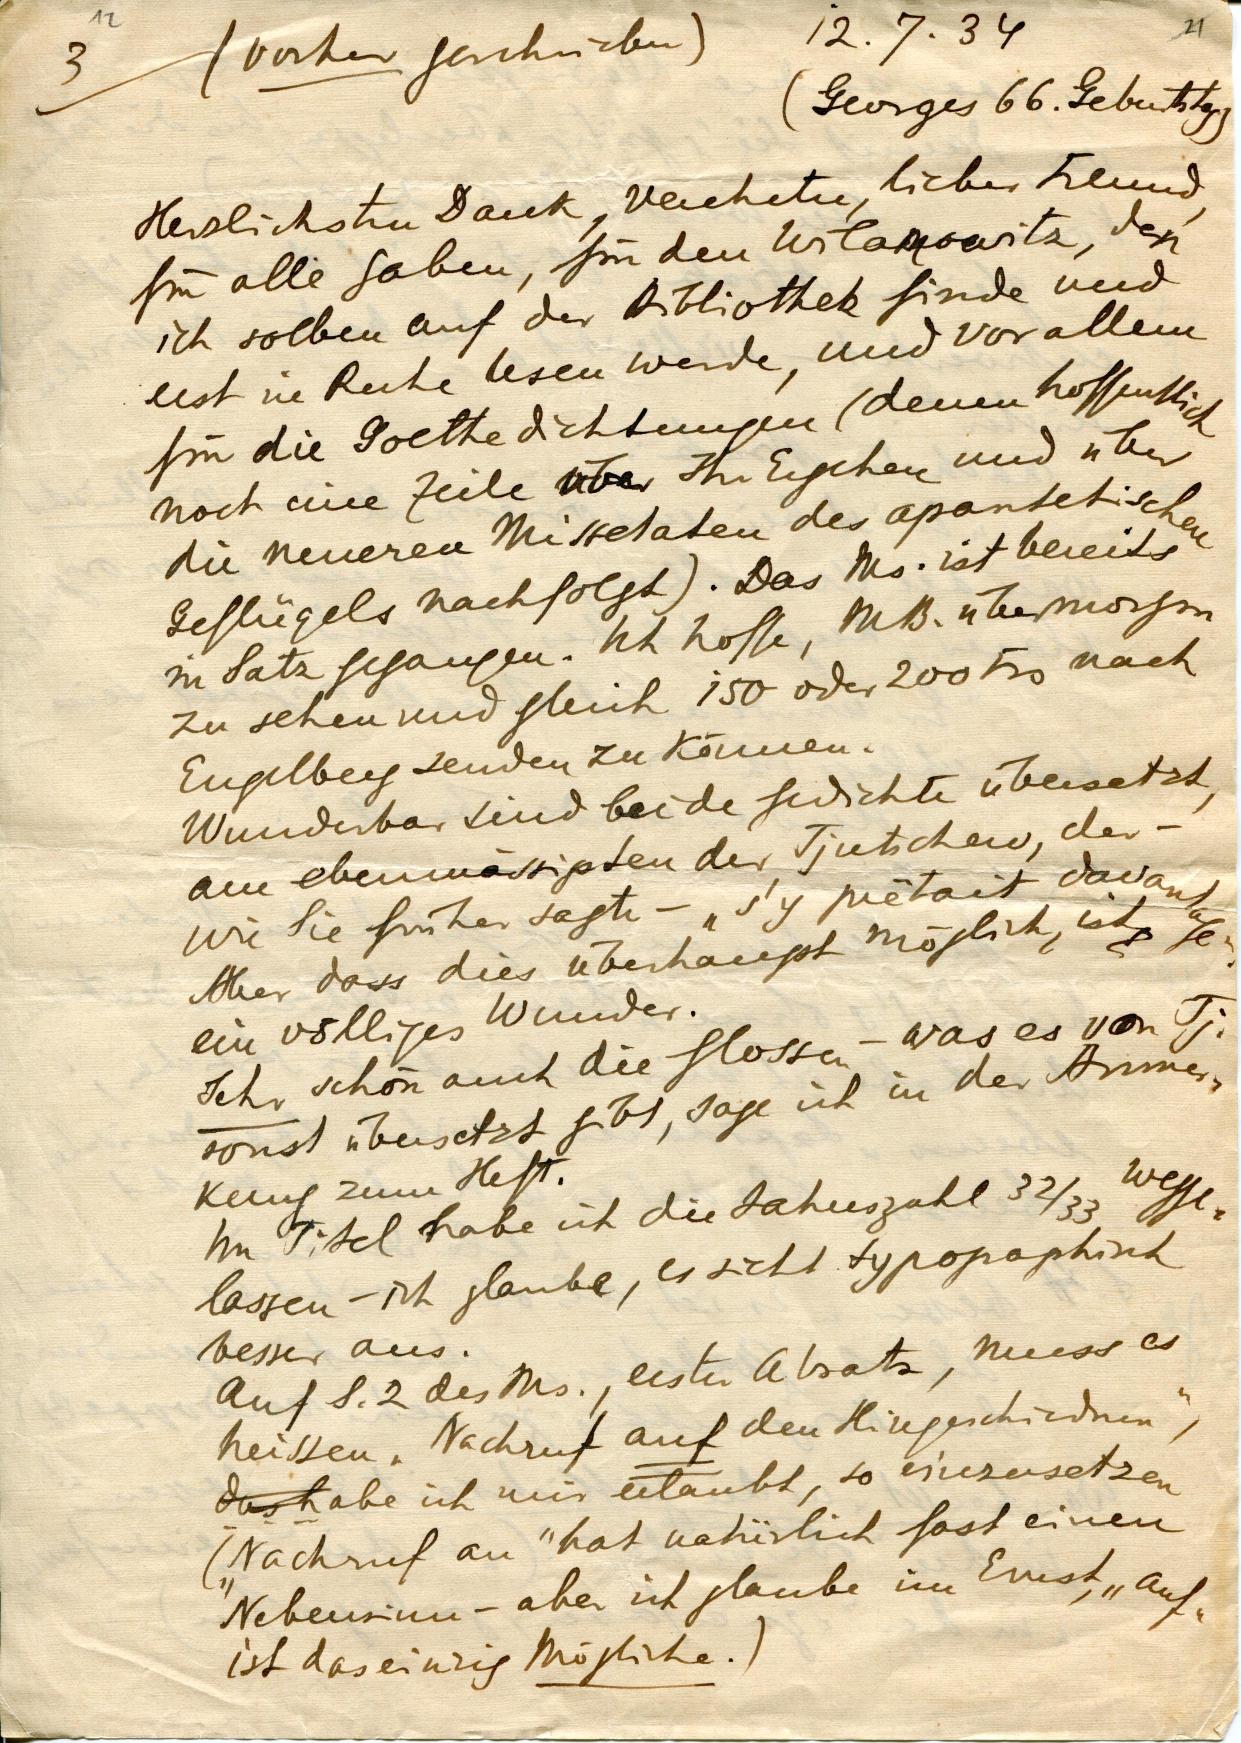 12
21
3 (vorher geschrieben) 12.7.34
(Georges 66. Geburtstag)
Herzlichsten Dank, verehrter, lieber Freund,
für alle Gaben, für den Wilamowitz, den
ich soeben auf der Bibliothek finde und
erst in Ruhe lesen werde, und vor allem
für die Goethedichtungen (denen hoffentlich
noch eine Zeile über Ihr Ergehen und über
die neueren Missetaten des
Geflügels nachfolgt). Das Ms. ist bereits
in Satz gegangen. Ich hoffe, M B. übermorgen
zu sehen und gleich 150 oder 200 Frs nach
Engelberg senden zu können.
Wunderbar sind beide Gedichte übersetzt,
am ebenmässigsten der Tjutschew, der –
wie Sie früher sagten – „s'y prêtait davantage".
Aber dass dies überhaupt möglich, ist
ein völliges Wunder.
Sehr schön auch die Glossen – was es von Tj.
sonst übersetzt gibt, sage ich in der Anmer-
kung zum Heft.
Im Titel habe ich die Jahreszahl 32/33 wegge-
lassen – ich glaube, es sieht typographisch
besser aus.
Auf S. 2 des Ms., erster Absatz, muss es
heissen „Nachruf auf den Hingeschiednen",
das habe ich mir erlaubt, so einzusetzen
(„Nachruf an" hat natürlich fast einen
Nebensinn – aber ich glaube im Ernst, „auf"
ist das einzig Mögliche.)